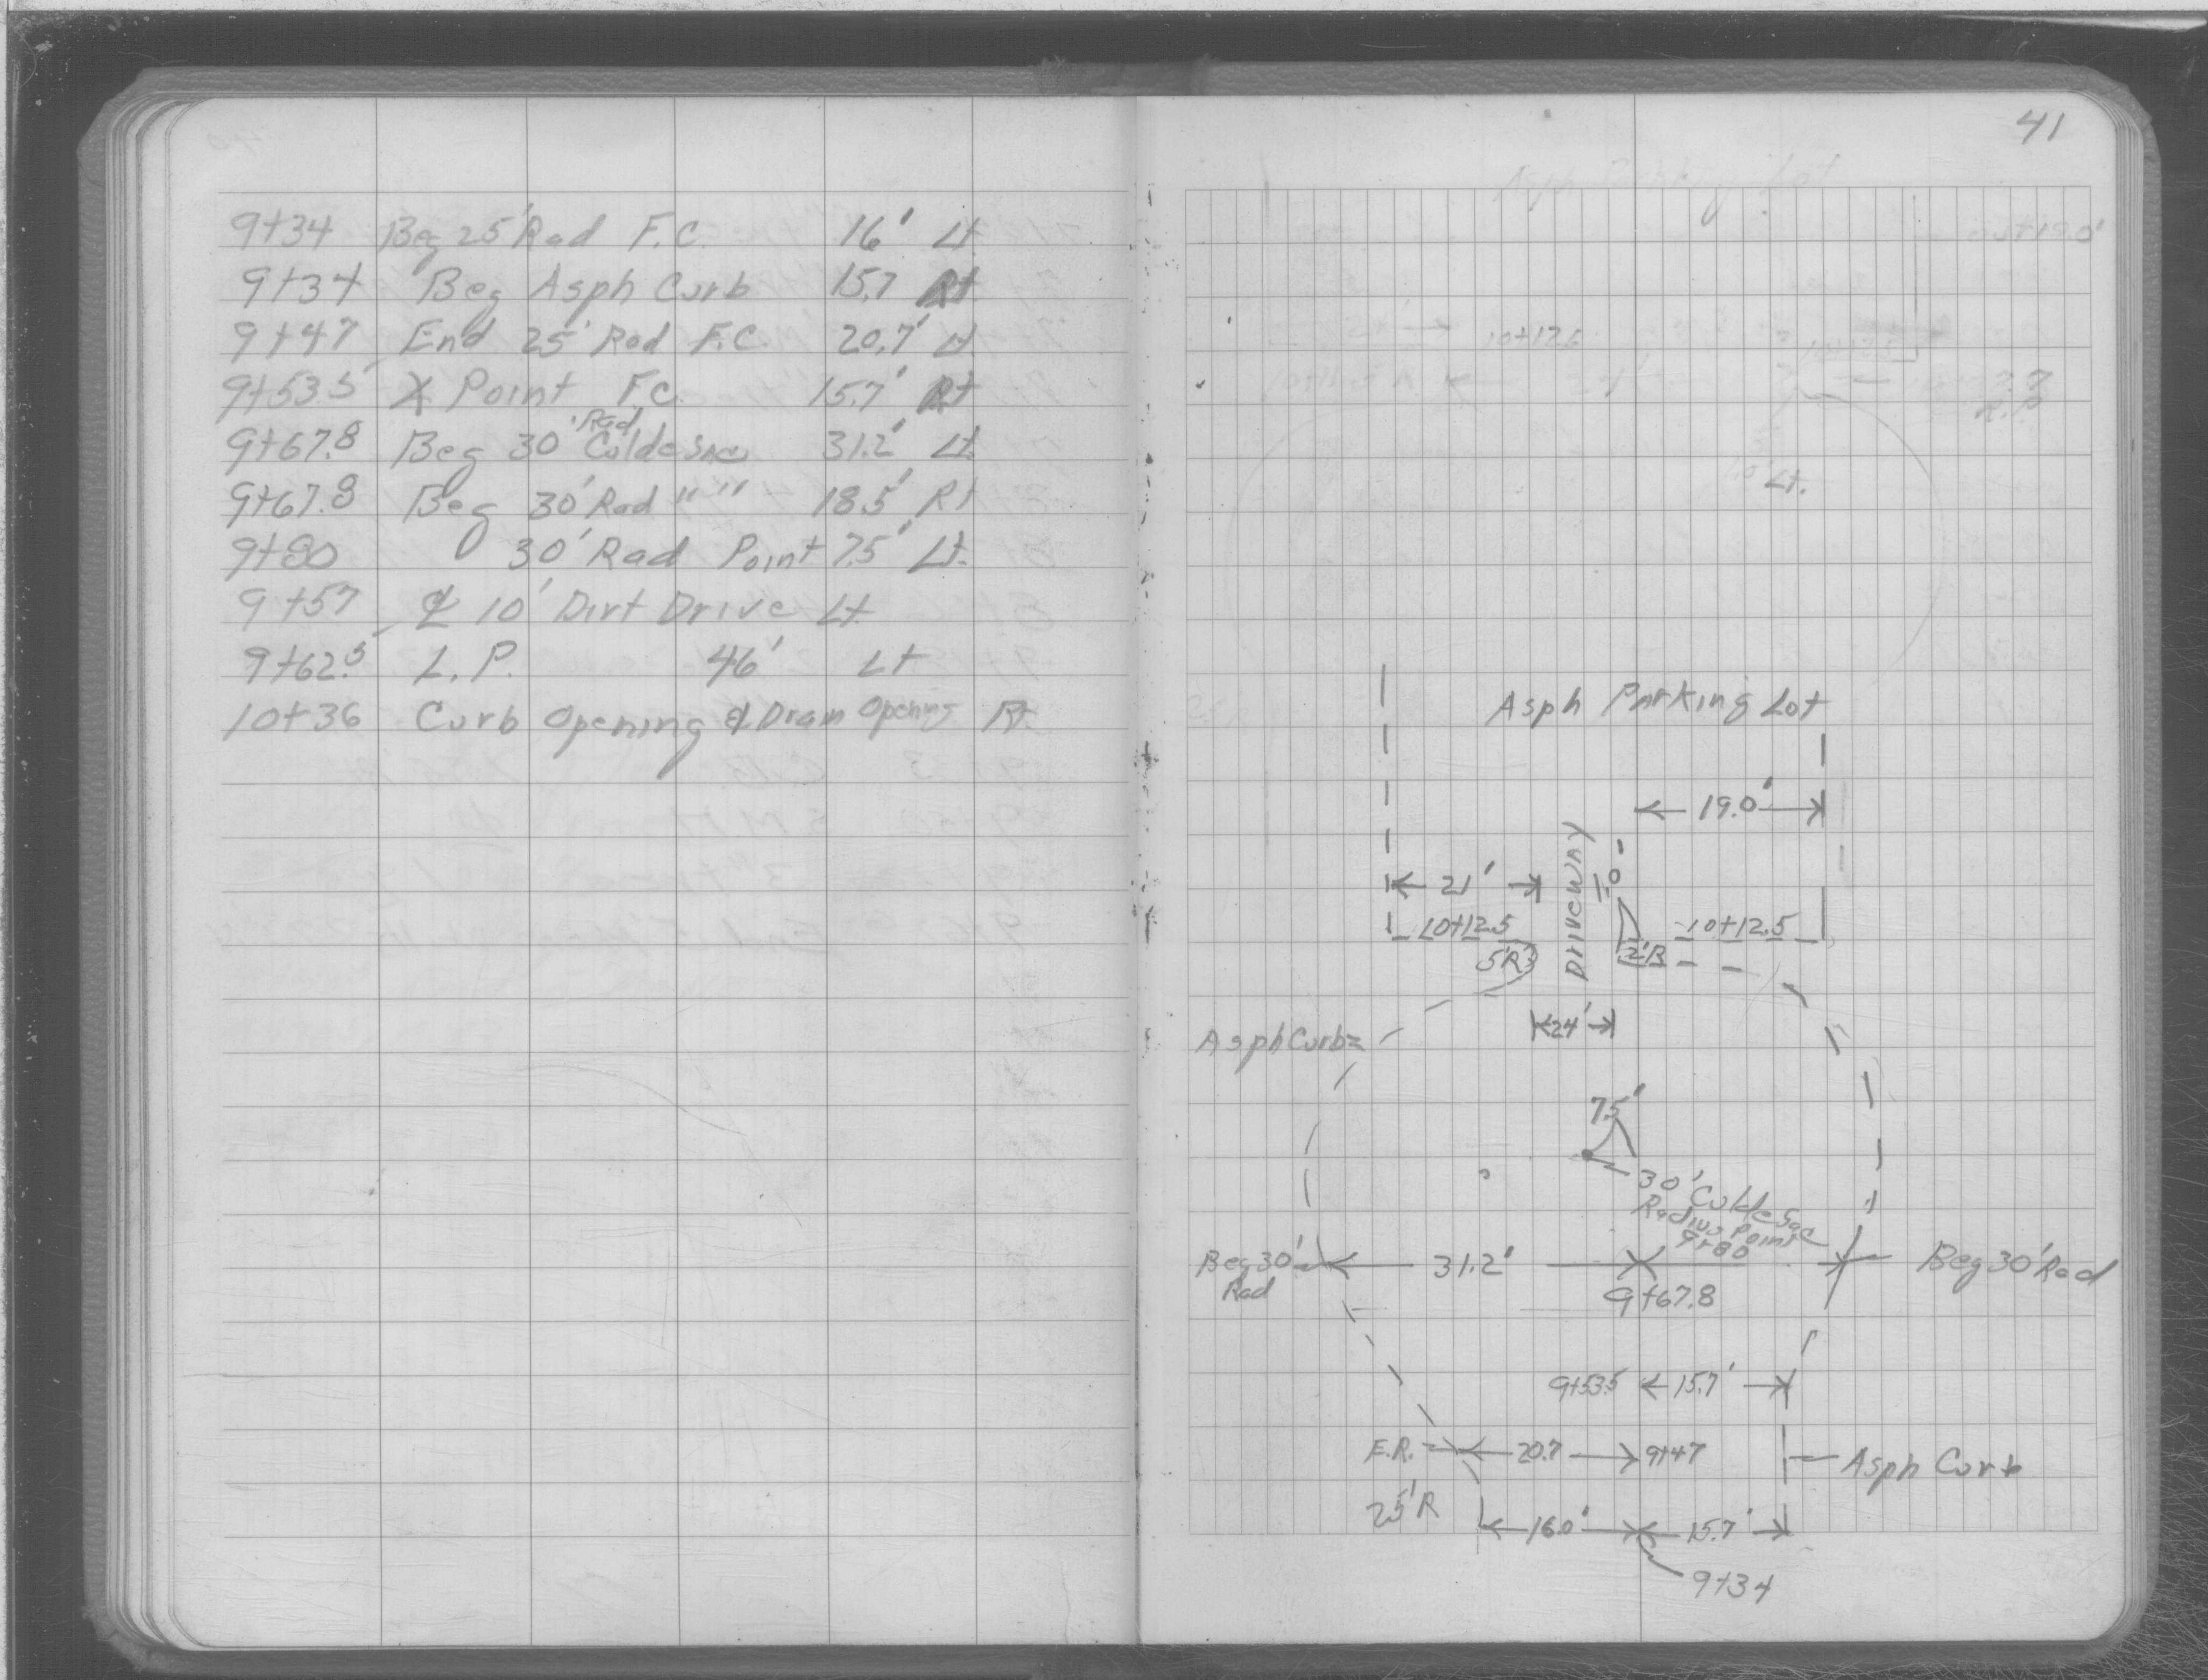 9+34 Beg 25' Rad F.C. 16' Lt
9+34 Beg Asph Curb 15.7 Rt
9+47 End 25' Rad F.C. 20.7' Lt
9+53.5 X Point F.C. 15.7' Rt
9+67.8 Beg 30' Rad Culdesac 31.2' Lt
9+67.8 Beg 30' Rad " " 18.5' Rt
9+80 30' Rad Point 7.5' Lt.
9+57 ℄ 10' Dirt Drive Lt
9+62.5 L.P. 46' Lt
10+36 Curb Opening & Drain Opening Rt.
41
Asph Parking Lot
10+12.5
Lt.
Asph Parking Lot
19.0'
Driveway
1.0'
21'
10+12.5
10+12.5
5'R
2'R
24'
Asph Curb
7.5'
30' Culdesac
Radius Point
9+80
Beg 30' Rad
31.2'
9+67.8
Beg 30' Rad
9+53.5 15.7'
E.R. 20.7 9+47
Asph Curb
25'R
16.0' 15.7'
9+34